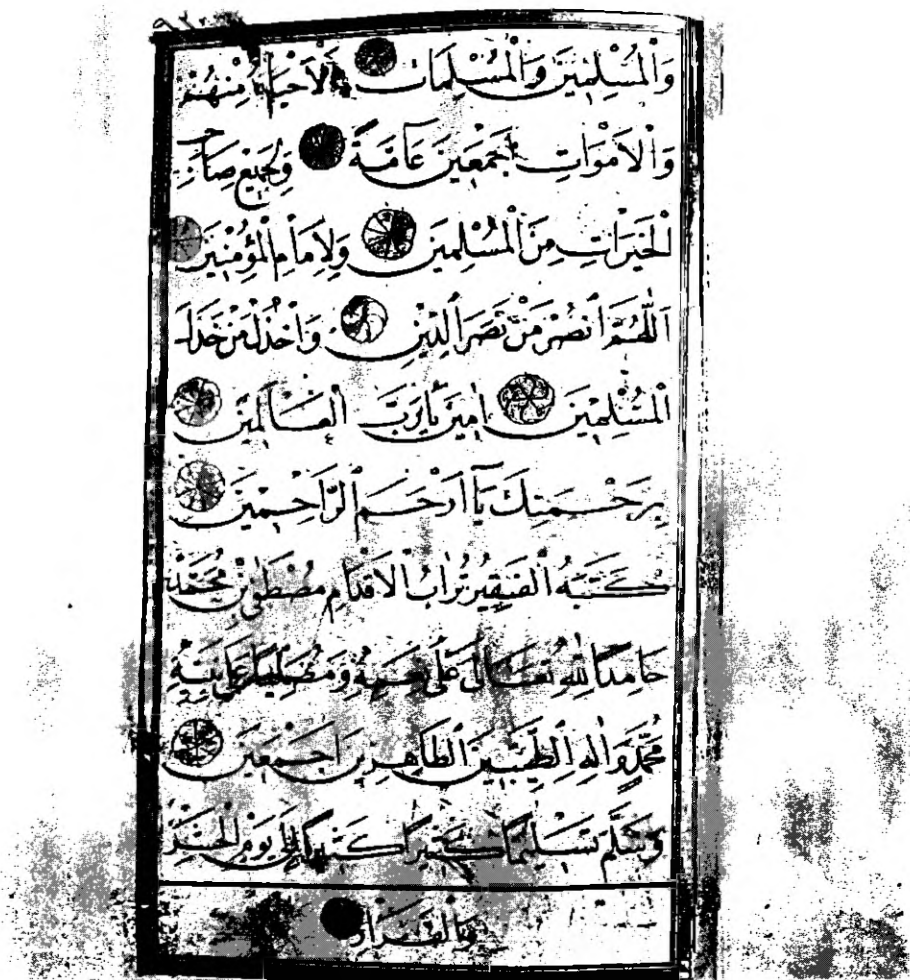 وَالْمُسْلِمِينَ وَالْمُسْلِمَاتِ اَلْاَحْيَاءِ مِنْهُمْ
وَالْاَمْوَاتِ اَجْمَعِينَ عَامَّةً وَلِجَمِيعِ
الْخَيْرَاتِ مِنَ الْمُسْلِمِينَ وَلِاِمَامِ الْمُؤْمِنِينَ
اَللّٰهُمَّ انْصُرْ مَنْ نَصَرَ الدِّينَ وَاخْذُلْ مَنْ خَذَلَ
الْمُسْلِمِينَ اٰمِينَ يَا رَبَّ الْعَالَمِينَ
بِرَحْمَتِكَ يَا اَرْحَمَ الرَّاحِمِينَ
كَتَبَهُ الْفَقِيرُ تُرَابُ الْاَقْدَامِ مُصْطَفٰى بْنِ مُحَمَّدْ
حَامِدًا لِلّٰهِ تَعَالٰى عَلٰى نِعَمِهِ وَمُصَلِّيًا عَلٰى نَبِيِّهِ
مُحَمَّدٍ وَاٰلِهِ الطَّيِّبِينَ الطَّاهِرِينَ اَجْمَعِينَ
وَسَلَّمَ تَسْلِيمًا كَثِيرًا كَثِيرًا يَوْمِ
وَالْقَرَارِ